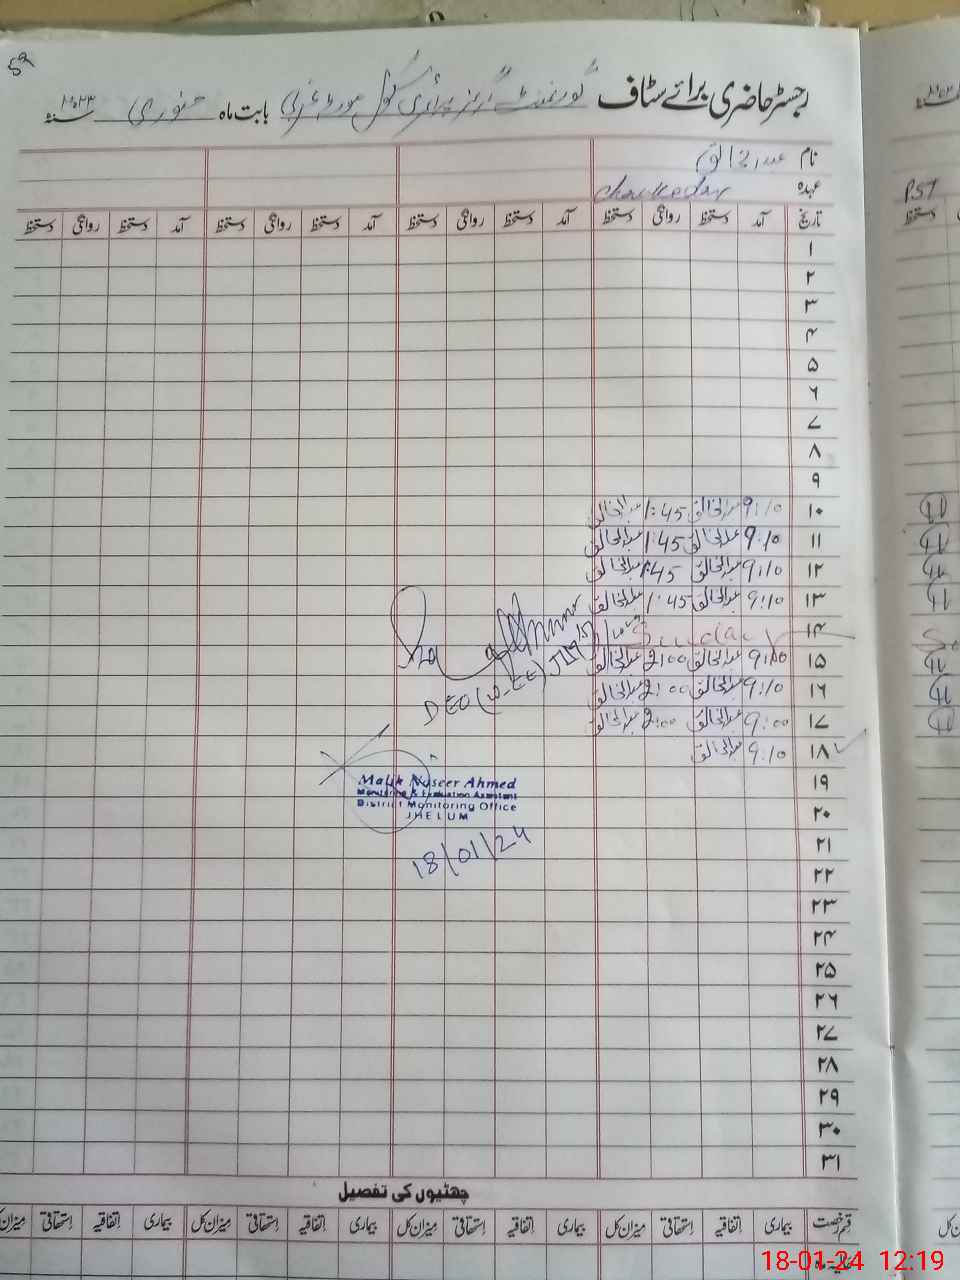 ۵۹
رجسٹر حاضری برائے سٹاف گورنمنٹ گرلز پرائمری سکول بابت ماہ جنوری سنہ ۲۰۲۳
نام عبدالخالق
عہدہ Chowkedar
PST
تاریخ آمد دستخط روانگی دستخط آمد دستخط روانگی دستخط آمد دستخط روانگی دستخط آمد دستخط روانگی دستخط
دستخط
۱
۲
۳
۴
۵
۶
۷
۸
۹
۱۰ 9:10 عبدالخالق 1:45 عبدالخالق
۱۱ 9:10 عبدالخالق 1:45 عبدالخالق
۱۲ 9:10 عبدالخالق 1:45 عبدالخالق
۱۳ 9:10 عبدالخالق 1:45 عبدالخالق
۱۴ Sunday
۱۵ 9:10 عبدالخالق 2:00 عبدالخالق
۱۶ 9:10 عبدالخالق 2:00 عبدالخالق
۱۷ 9:00 عبدالخالق 2:00 عبدالخالق
۱۸ 9:10 عبدالخالق
DEO (W-EE) JLM
۱۹
Malik Naseer Ahmed
Monitoring & Evaluation Assistant
District Monitoring Office
JHELUM
18/01/24
۲۰
۲۱
۲۲
۲۳
۲۴
۲۵
۲۶
۲۷
۲۸
۲۹
۳۰
۳۱
چھٹیوں کی تفصیل
قسم رخصت بیماری اتفاقیہ استحقاقی میزان کل بیماری اتفاقیہ استحقاقی میزان کل بیماری اتفاقیہ استحقاقی میزان کل بیماری اتفاقیہ استحقاقی میزان کل
حالیہ ماہ
18-01-24 12:19